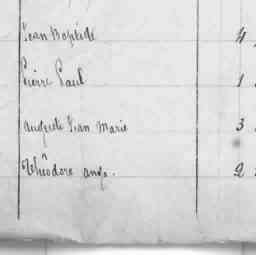 Jean Baptiste 4
Pierre Paul 1
auguste Jean Marie 3
Théodore ange. 2